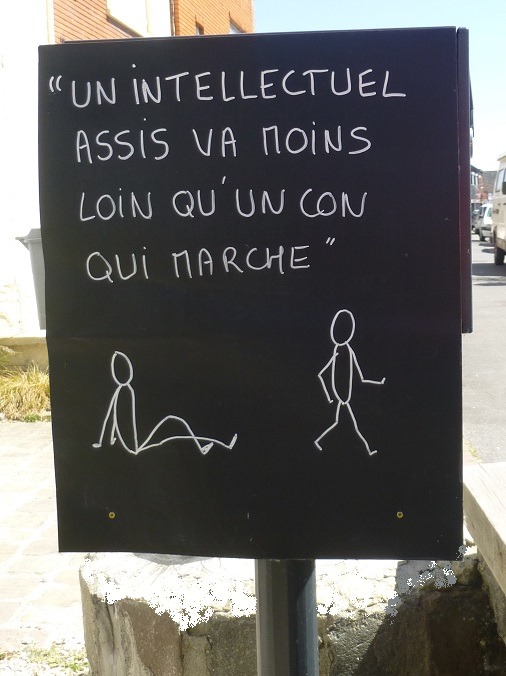 “UN INTELLECTUEL
ASSIS VA MOINS
LOIN QU'UN CON
QUI MARCHE”